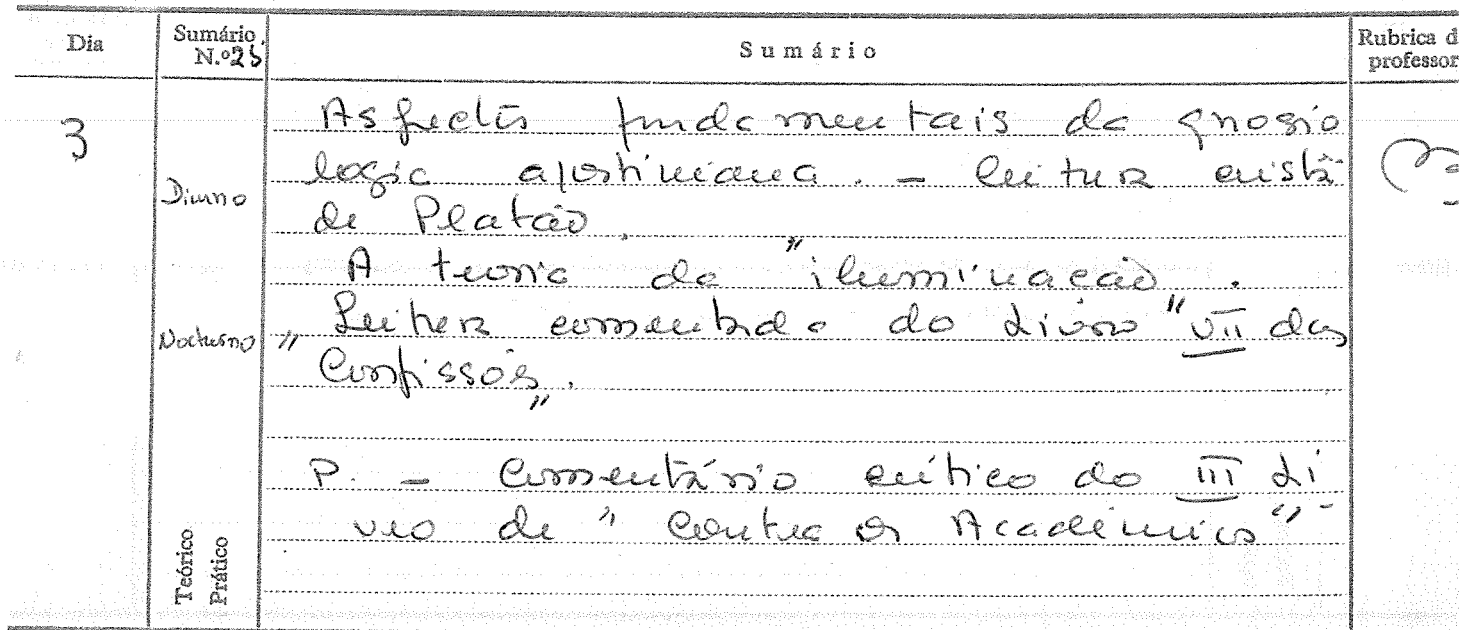 Dia
Sumário N.º 25
Sumário
Rubrica d
professor
3
Diurno
Nocturno
Teórico
Prático
Aspectos fundamentais da gnosio
logia agostiniana. – leitura cristã
de Platão.
A teoria da "iluminação".
Leitura comentada do Livro "VII das
Confissões".
P. – Comentário crítico do III Li
vro de "Contra os Académicos"